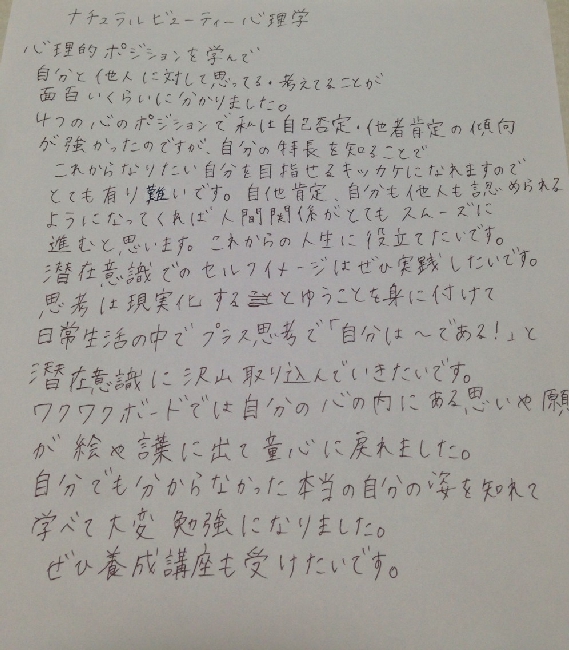 ナチュラルビューティー心理学
心理的ポジションを学んで
自分と他人に対して思ってる・考えてることが
面白いくらいに分かりました。
4つの心のポジションで私は自己否定・他者肯定の傾向
が強かったのですが、自分の特長を知ることで
これからなりたい自分を目指せるキッカケになれますので
とても有り難いです。自他肯定、自分も他人も認められる
ようになってくれば人間関係がとてもスムーズに
進むと思います。これからの人生に役立てたいです。
潜在意識でのセルフイメージはぜひ実践したいです。
思考は現実化するとゆうことを身に付けて
日常生活の中でプラス思考で「自分は〜である!」と
潜在意識に沢山取り込んでいきたいです。
ワクワクボードでは自分の心の内にある思いや願
が絵や言葉に出て童心に戻れました。
自分でも分からなかった本当の自分の姿を知れて
学べて大変勉強になりました。
ぜひ養成講座も受けたいです。